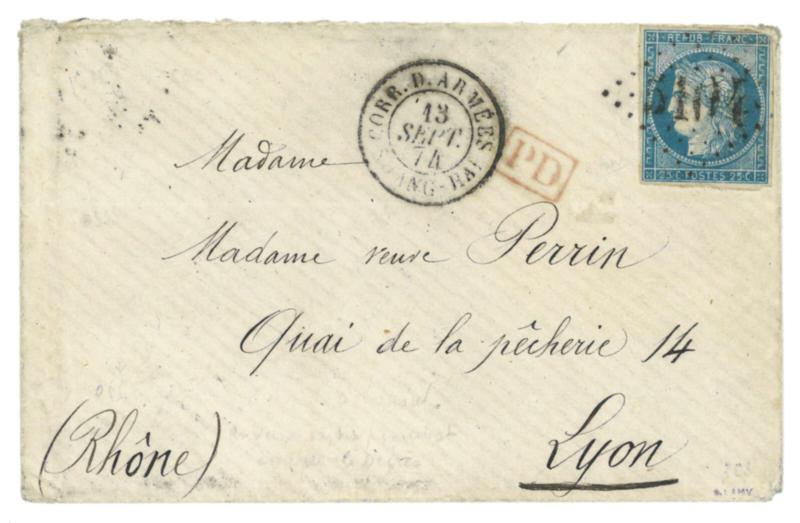 REPUB. FRANC.
5104
25C POSTES 25C
CORR. D. ARMÉES
13
SEPT.
74
PD
Madame
Madame veuve Perrin
Quai de la pêcherie 14
(Rhône) Lyon